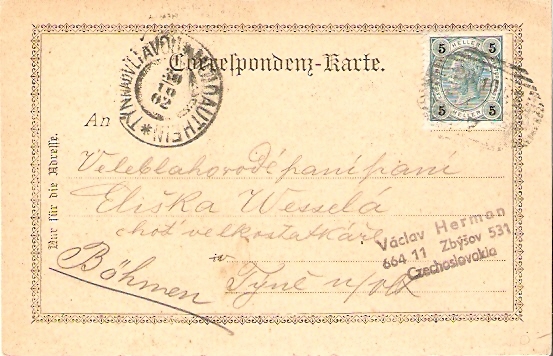 Correspondenz-Karte.
TÝN NAD VLTAVOU * MOLDAUTHEIN *
10
02
5 HELLER 5
5 HELLER 5
An
Nur für die Adresse.
Veleblahorodé paní paní
Eliška Wesselá
choť velkostatkáře
Böhmen
Týně n/Vlt
Václav Herman
664 11 Zbýšov 531
Czechoslovakia